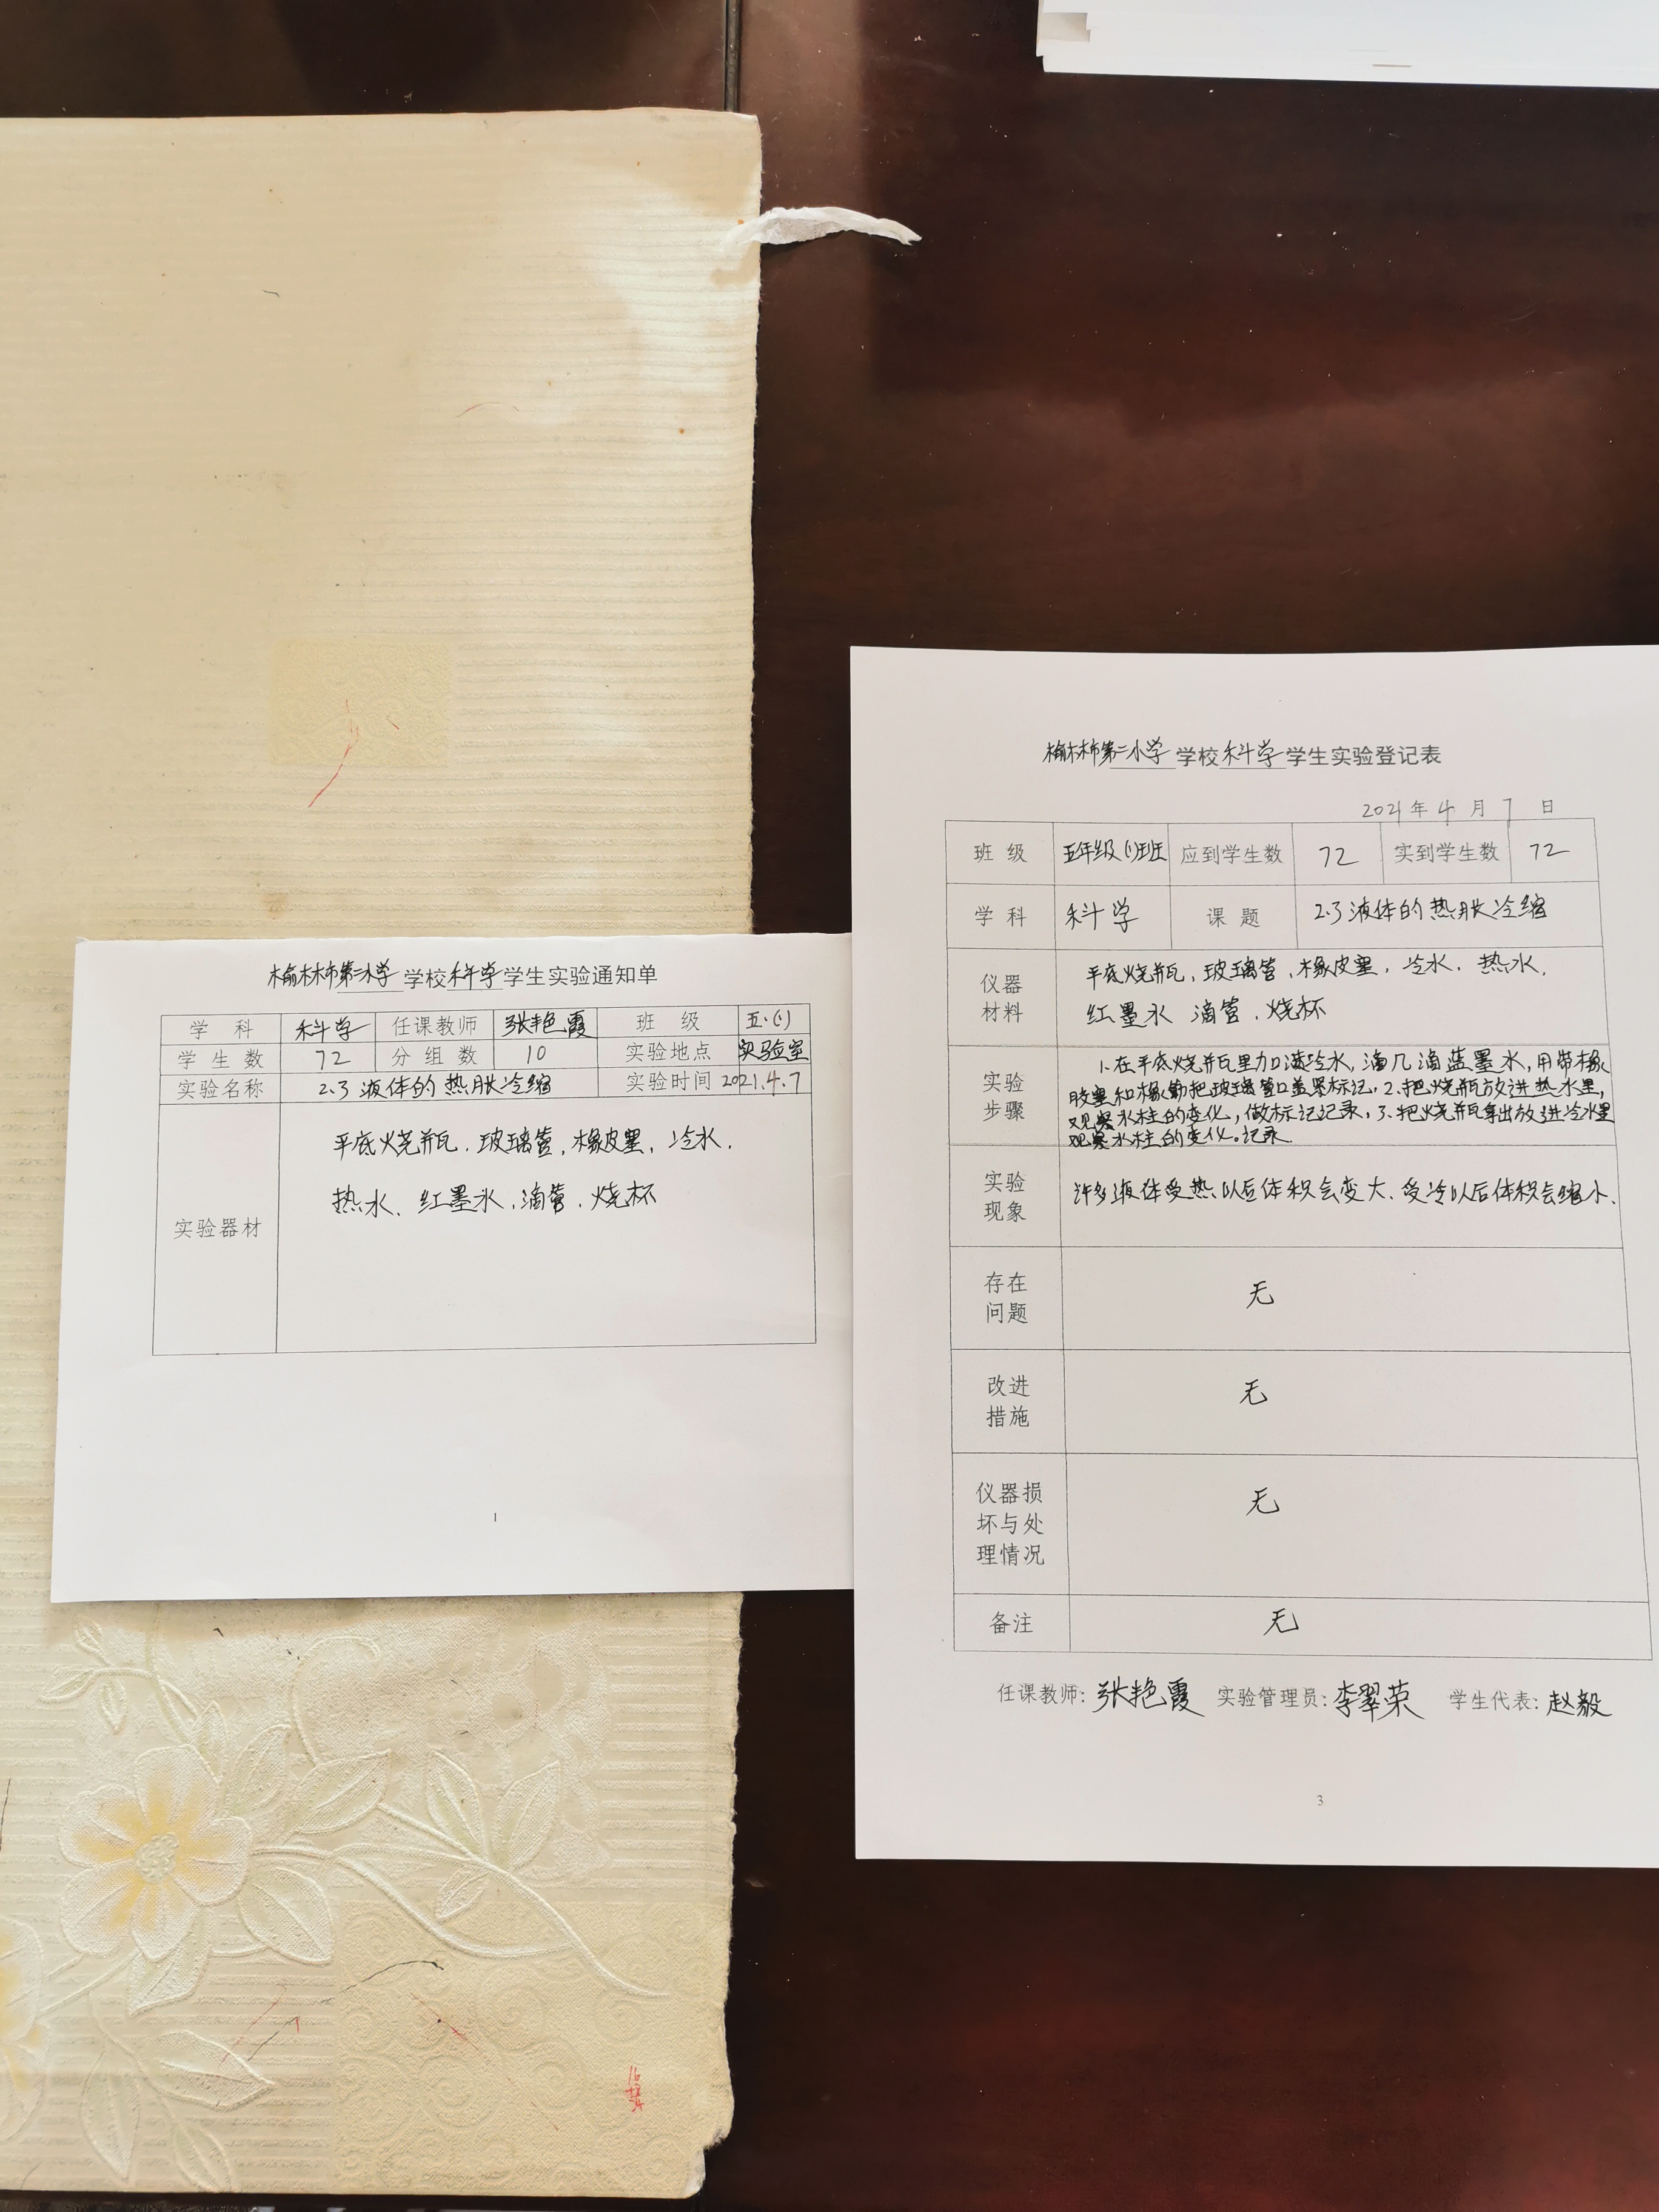 榆林市第二小学学校科学学生实验通知单
学 科 科学 任课教师 张艳霞 班 级 五.(1)
学 生 数 72 分 组 数 10 实验地点 实验室
实验名称 2.3 液体的热胀冷缩 实验时间 2021.4.7
实验器材
平底烧瓶、玻璃管、橡皮塞、冷水、
热水、红墨水、滴管、烧杯
1
榆林市第二小学学校科学学生实验登记表
2021年 4 月 7 日
班 级 五年级(1)班 应到学生数 72 实到学生数 72
学 科 科学 课 题 2.3 液体的热胀冷缩
仪器
材料
平底烧瓶、玻璃管、橡皮塞、冷水、热水、
红墨水 滴管、烧杯
实验
步骤
1.在平底烧瓶里加满冷水,滴几滴蓝墨水,用带橡
胶塞和橡 把玻璃管口盖紧标记,2.把烧瓶放进热水里,
观察水柱的变化,做标记记录,3.把烧瓶拿出放进冷水里
观察水柱的变化。记录.
实验
现象
许多液体受热以后体积会变大、受冷以后体积会缩小.
存在
问题
无
改进
措施
无
仪器损
坏与处
理情况
无
备注 无
任课教师: 张艳霞 实验管理员: 李翠荣 学生代表: 赵毅
3